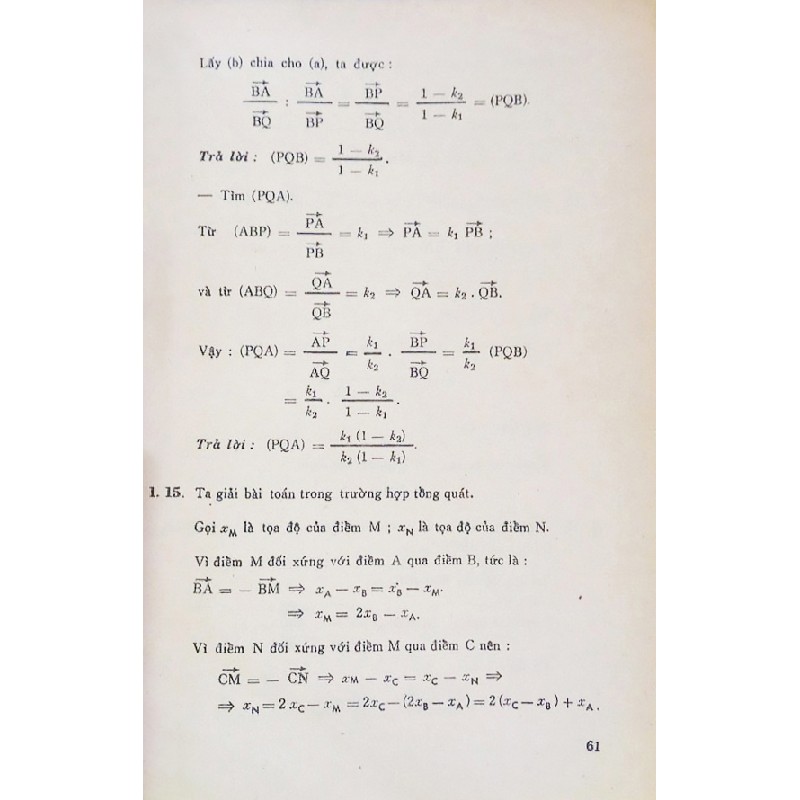 Lấy (b) chia cho (a), ta được :
BA⃗/BQ⃗ : BA⃗/BP⃗ = BP⃗/BQ⃗ = (1 − k₂)/(1 − k₁) = (PQB).
Trả lời : (PQB) = (1 − k₂)/(1 − k₁).
— Tìm (PQA).
Từ (ABP) = PA⃗/PB⃗ = k₁ ⇒ PA⃗ = k₁ PB⃗ ;
và từ (ABQ) = QA⃗/QB⃗ = k₂ ⇒ QA⃗ = k₂ . QB⃗.
Vậy : (PQA) = AP⃗/AQ⃗ = k₁/k₂ . BP⃗/BQ⃗ = k₁/k₂ (PQB)
= k₁/k₂ . (1 − k₂)/(1 − k₁).
Trả lời : (PQA) = k₁ (1 − k₂)/k₂ (1 − k₁).
1. 15. Ta giải bài toán trong trường hợp tổng quát.
Gọi x_M là tọa độ của điểm M ; x_N là tọa độ của điểm N.
Vì điểm M đối xứng với điểm A qua điểm B, tức là :
BA⃗ = − BM⃗ ⇒ x_A − x_B = x_B − x_M.
⇒ x_M = 2x_B − x_A.
Vì điểm N đối xứng với điểm M qua điểm C nên :
CM⃗ = − CN⃗ ⇒ x_M − x_C = x_C − x_N ⇒
⇒ x_N = 2 x_C − x_M = 2x_C − (2x_B − x_A) = 2 (x_C − x_B) + x_A.
61